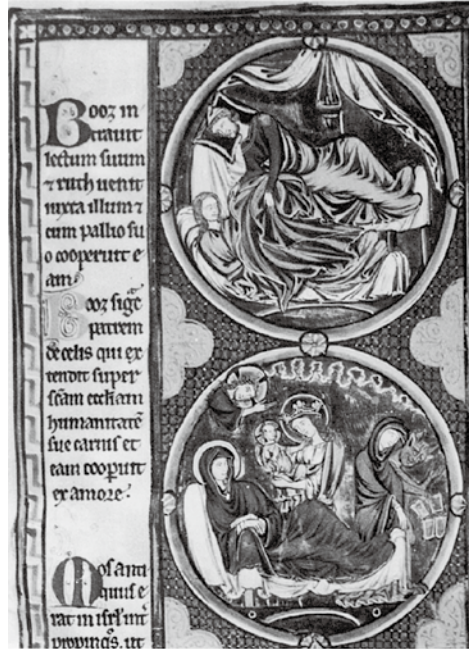 Booz in
trauit
lectum suum
⁊ ruth uenit
iuxta illum ⁊
cum pallio su
o cooperuit e
am
Booz sigt̄
patrem
de celis qui ex
tendit super
sc̄am eccl̄iam
humanitatē
sue carnis et
eam coop̄uit
ex amore.
Mos anti
quus e
rat in isrl̄ int̄
propinqs. ut